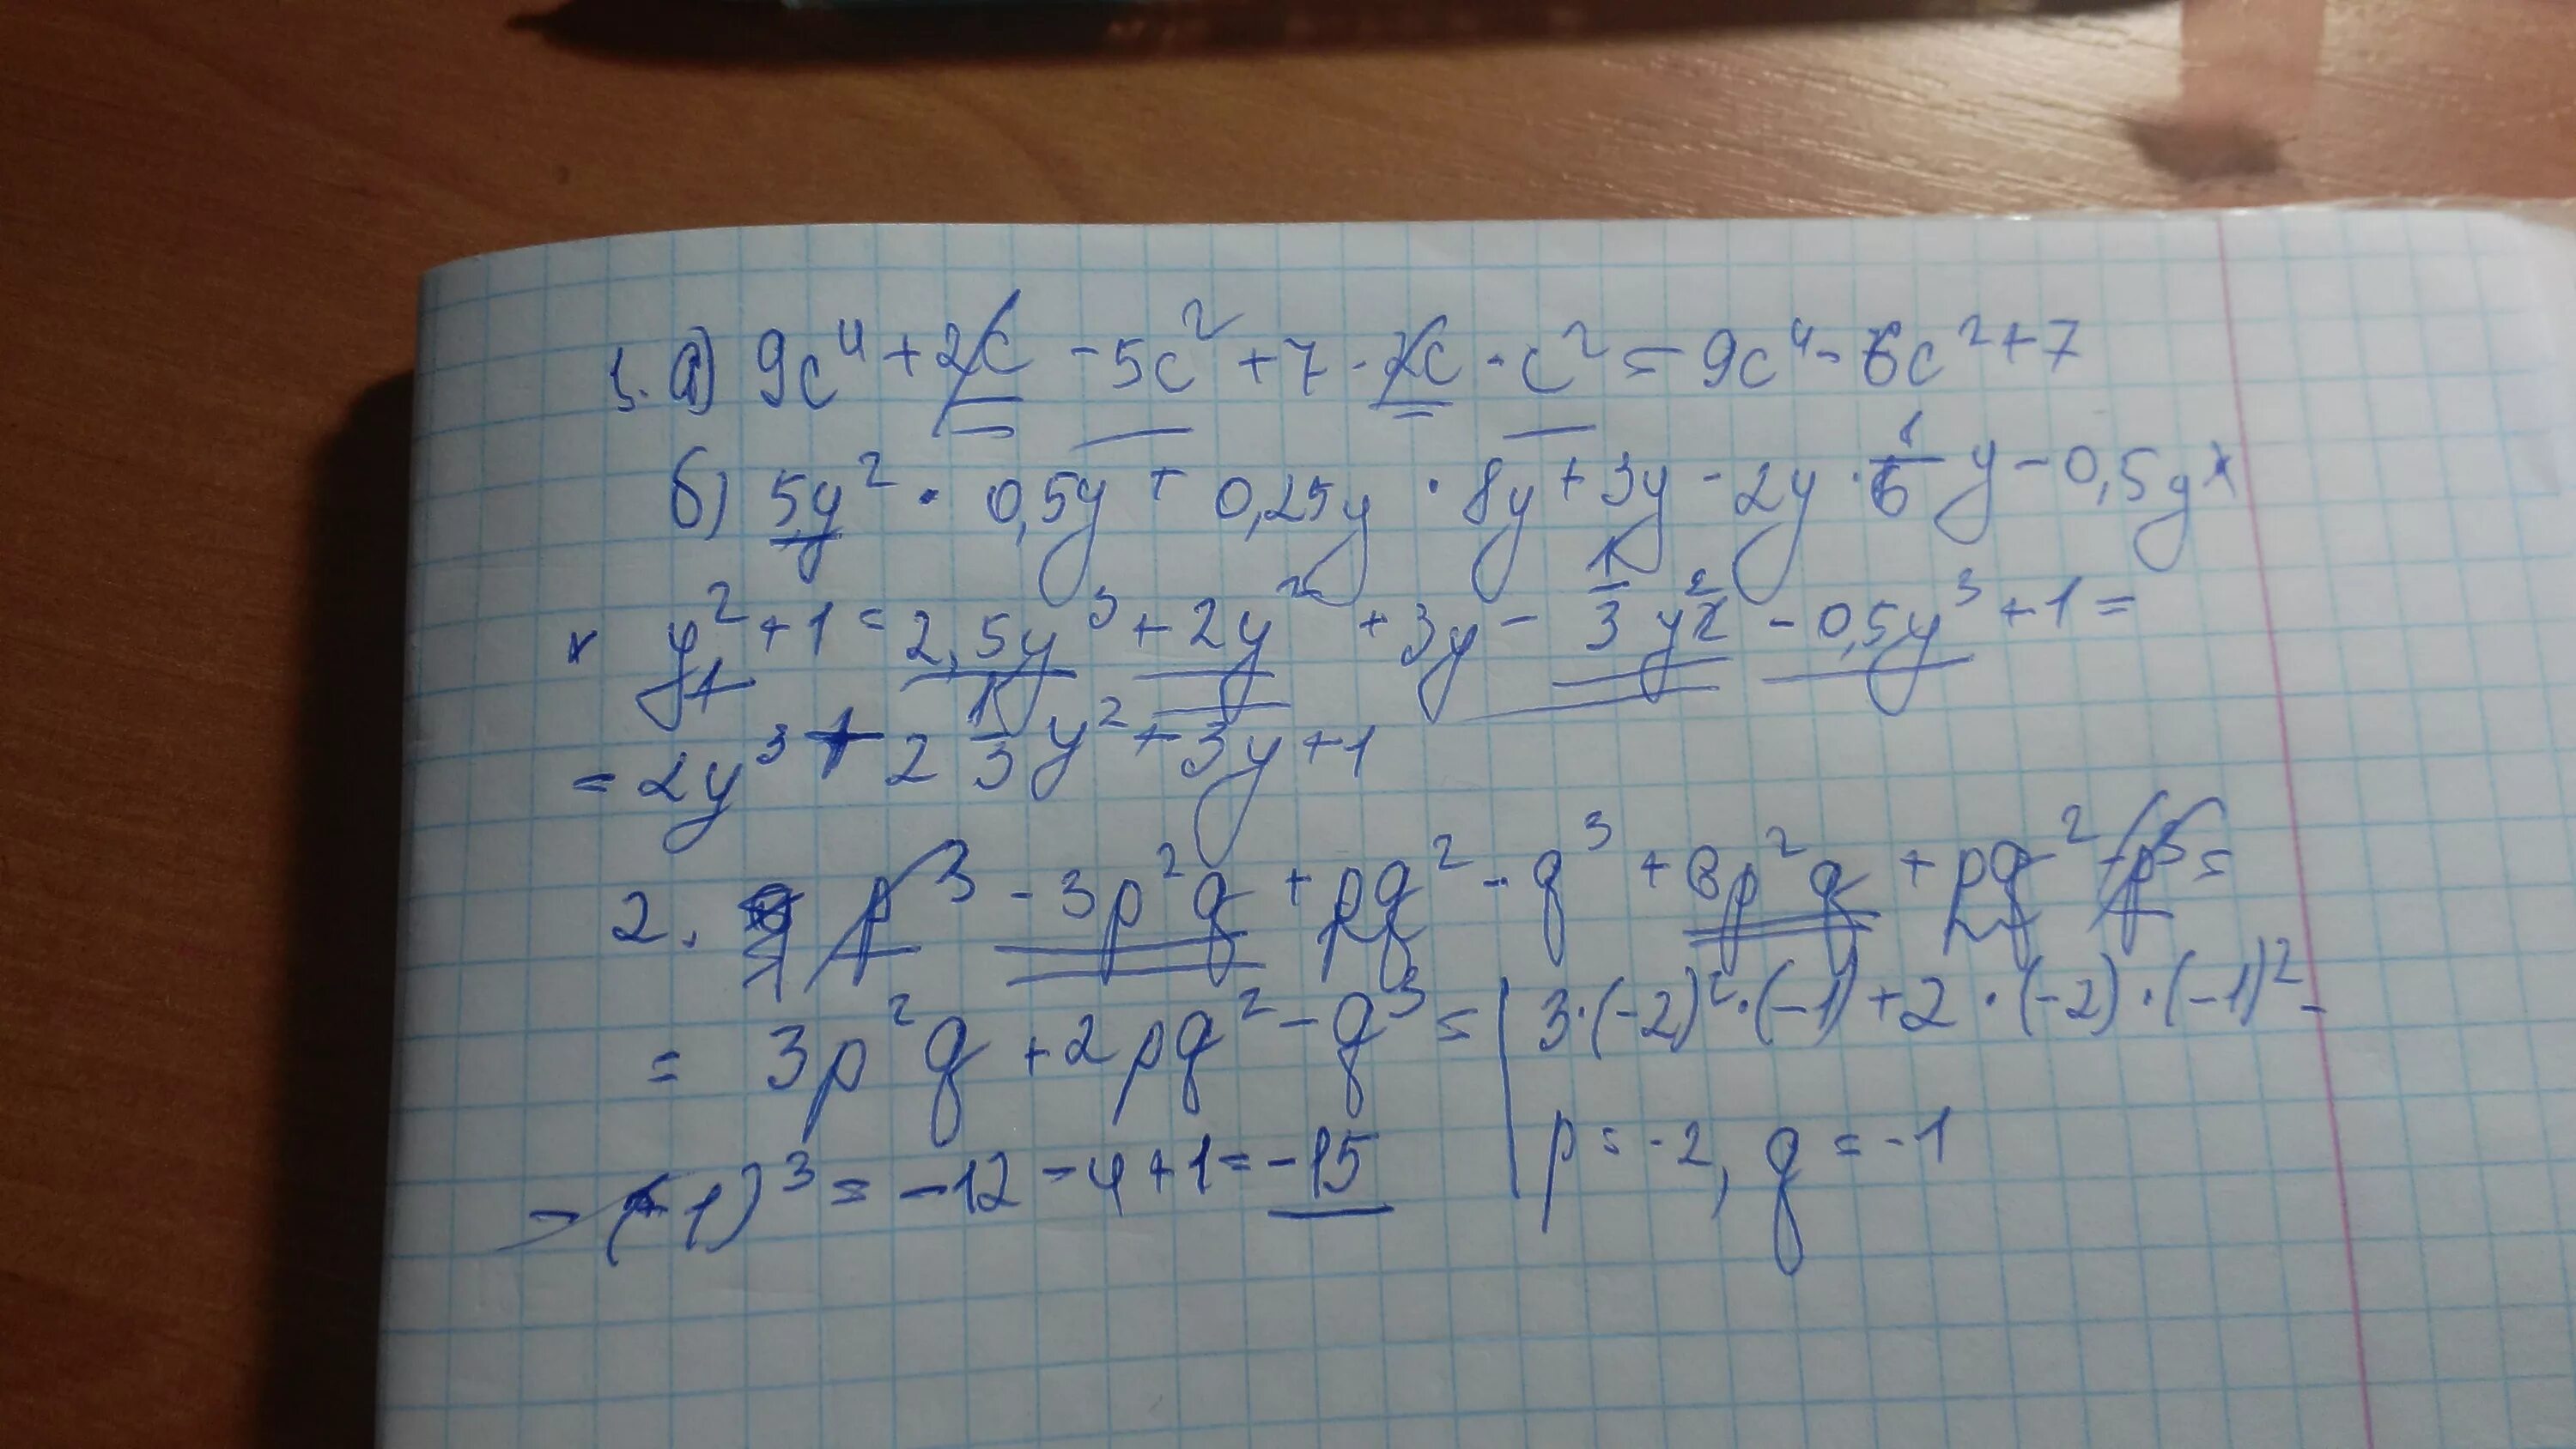 1. а) 9c⁴ + 2c - 5c² + 7 - 2c - c² = 9c⁴ - 6c² + 7
б) 5y² · 0,5y + 0,25y · 8y + 3y - 2y · 1/6 y - 0,5y ×
× y² + 1 = 2,5y³ + 2y² + 3y - 1/3 y² - 0,5y³ + 1 =
= 2y³ + 2 1/3 y² + 3y + 1
2. p³ - 3p²q + pq² - q³ + 6p²q + pq² - p³ =
= 3p²q + 2pq² - q³ = | 3·(-2)²·(-1) + 2·(-2)·(-1)² -
- (-1)³ = -12 - 4 + 1 = -15 | p = -2, q = -1